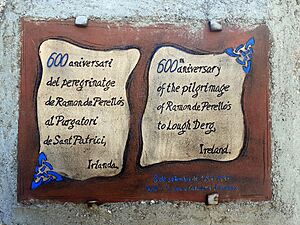 600 aniversari
del peregrinatge
de Ramon de Perellós
al Purgatori
de Sant Patrici,
Irlanda.
600th anniversary
of the pilgrimage
of Ramon de Perellós
to Lough Derg,
Ireland.